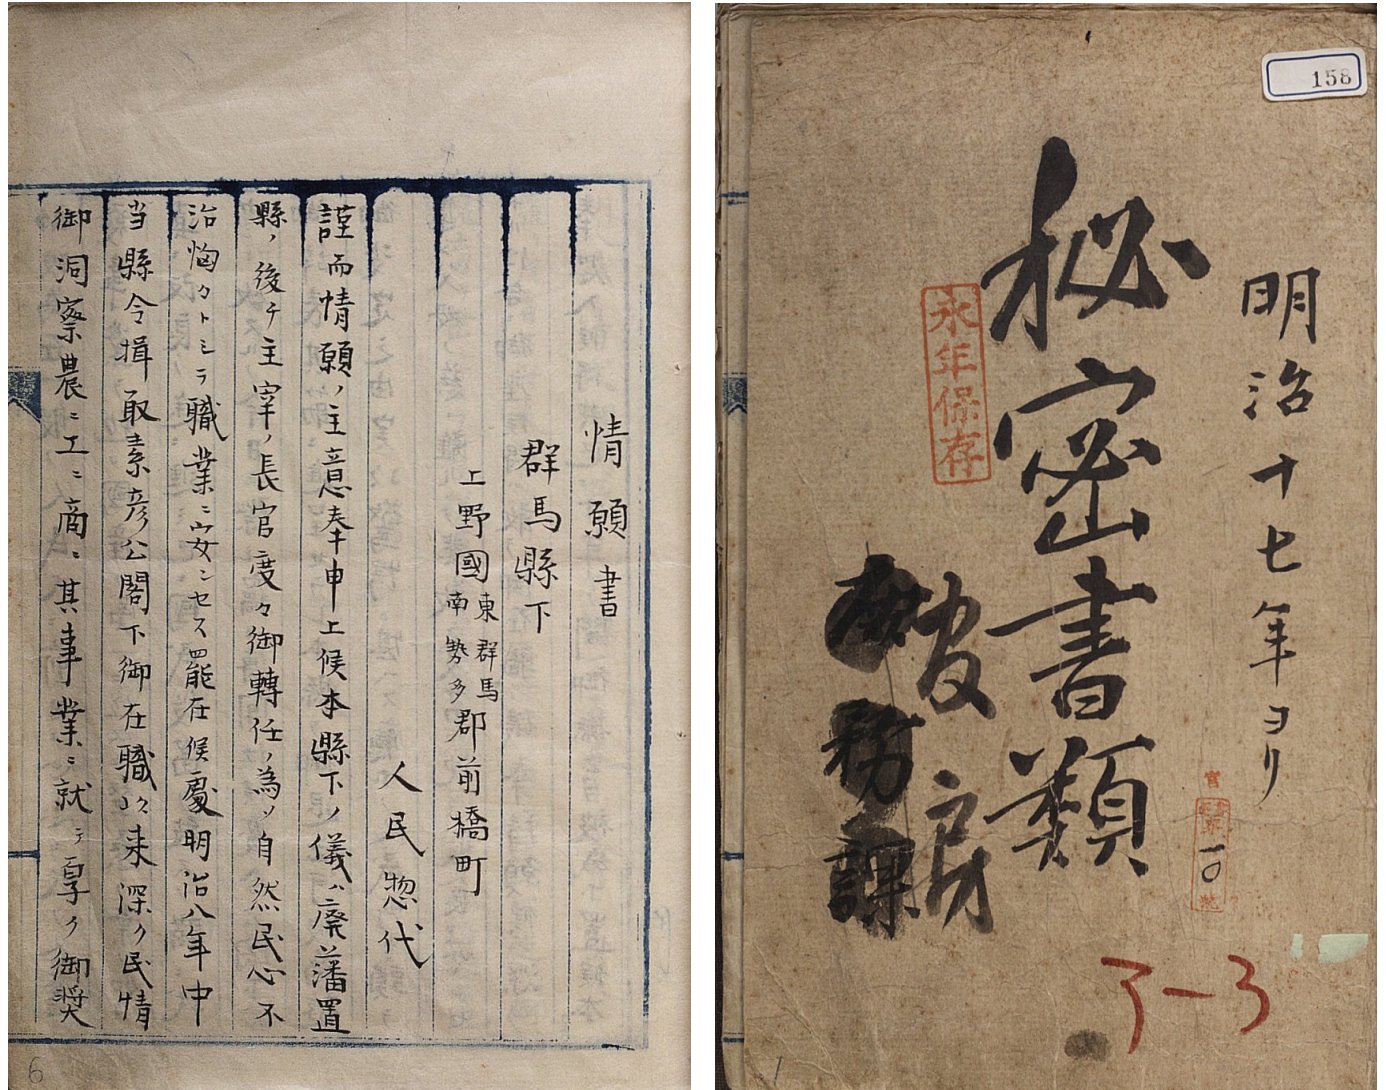 158
明治十七年ヨリ
秘密書類
永年保存
官房
庶務課
一〇
3
1
情願書
群馬縣下
上野國東群馬南勢多郡前橋町
人民惣代
謹而情願ノ主意奉申上候本縣下ノ儀ハ廃藩置
縣ノ後チ主宰ノ長官度々御轉任ノ為メ自然民心不
治恟々トシテ職業ニ安ンセス罷在候處明治八年中
当縣令揖取素彦公閣下御在職以来深ク民情
御洞察農ニ工ニ商ニ其事業ニ就テ厚ク御奨
6